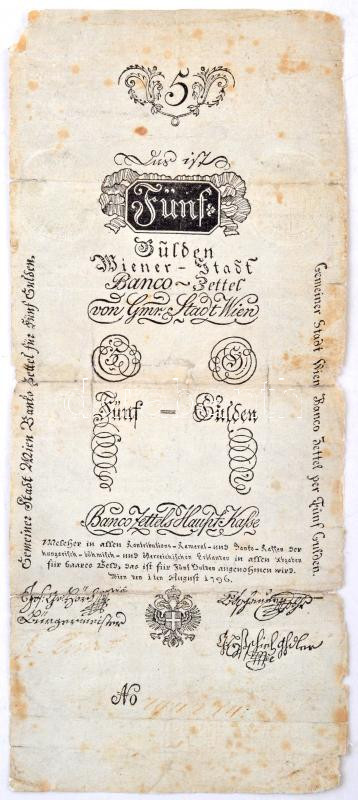 5
Das ist
Fünf
Gulden
Wiener-Stadt
Banco-Zettel
von Gmr: Stadt Wien
Gemeiner Stadt Wien Banko Zettel für Fünf Gulden.
Gemeiner Stadt Wien Banco Zettel per Fünf Gulden.
5 5
Fünf = Gulden
Banco Zettels Haupt Kasse
Welcher in allen Kontributions- Kameral- und Banko-Kassen der
Hungarisch-böhmisch- und Oesterreichischen Erblanden in allen Abgaben
für baares Geld, das ist Fünf Gulden angenohmen wird.
Wien den 1ten August 1796.
Bürgermeister
No